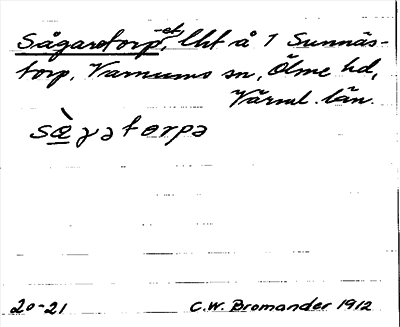 Sågaretorp, -et, lht å 1 Sunnäs-
torp, Varnums sn, Ölme hd,
Värml. län.
sæ̀ɣatorpa
20-21 C.W. Bromander 1912